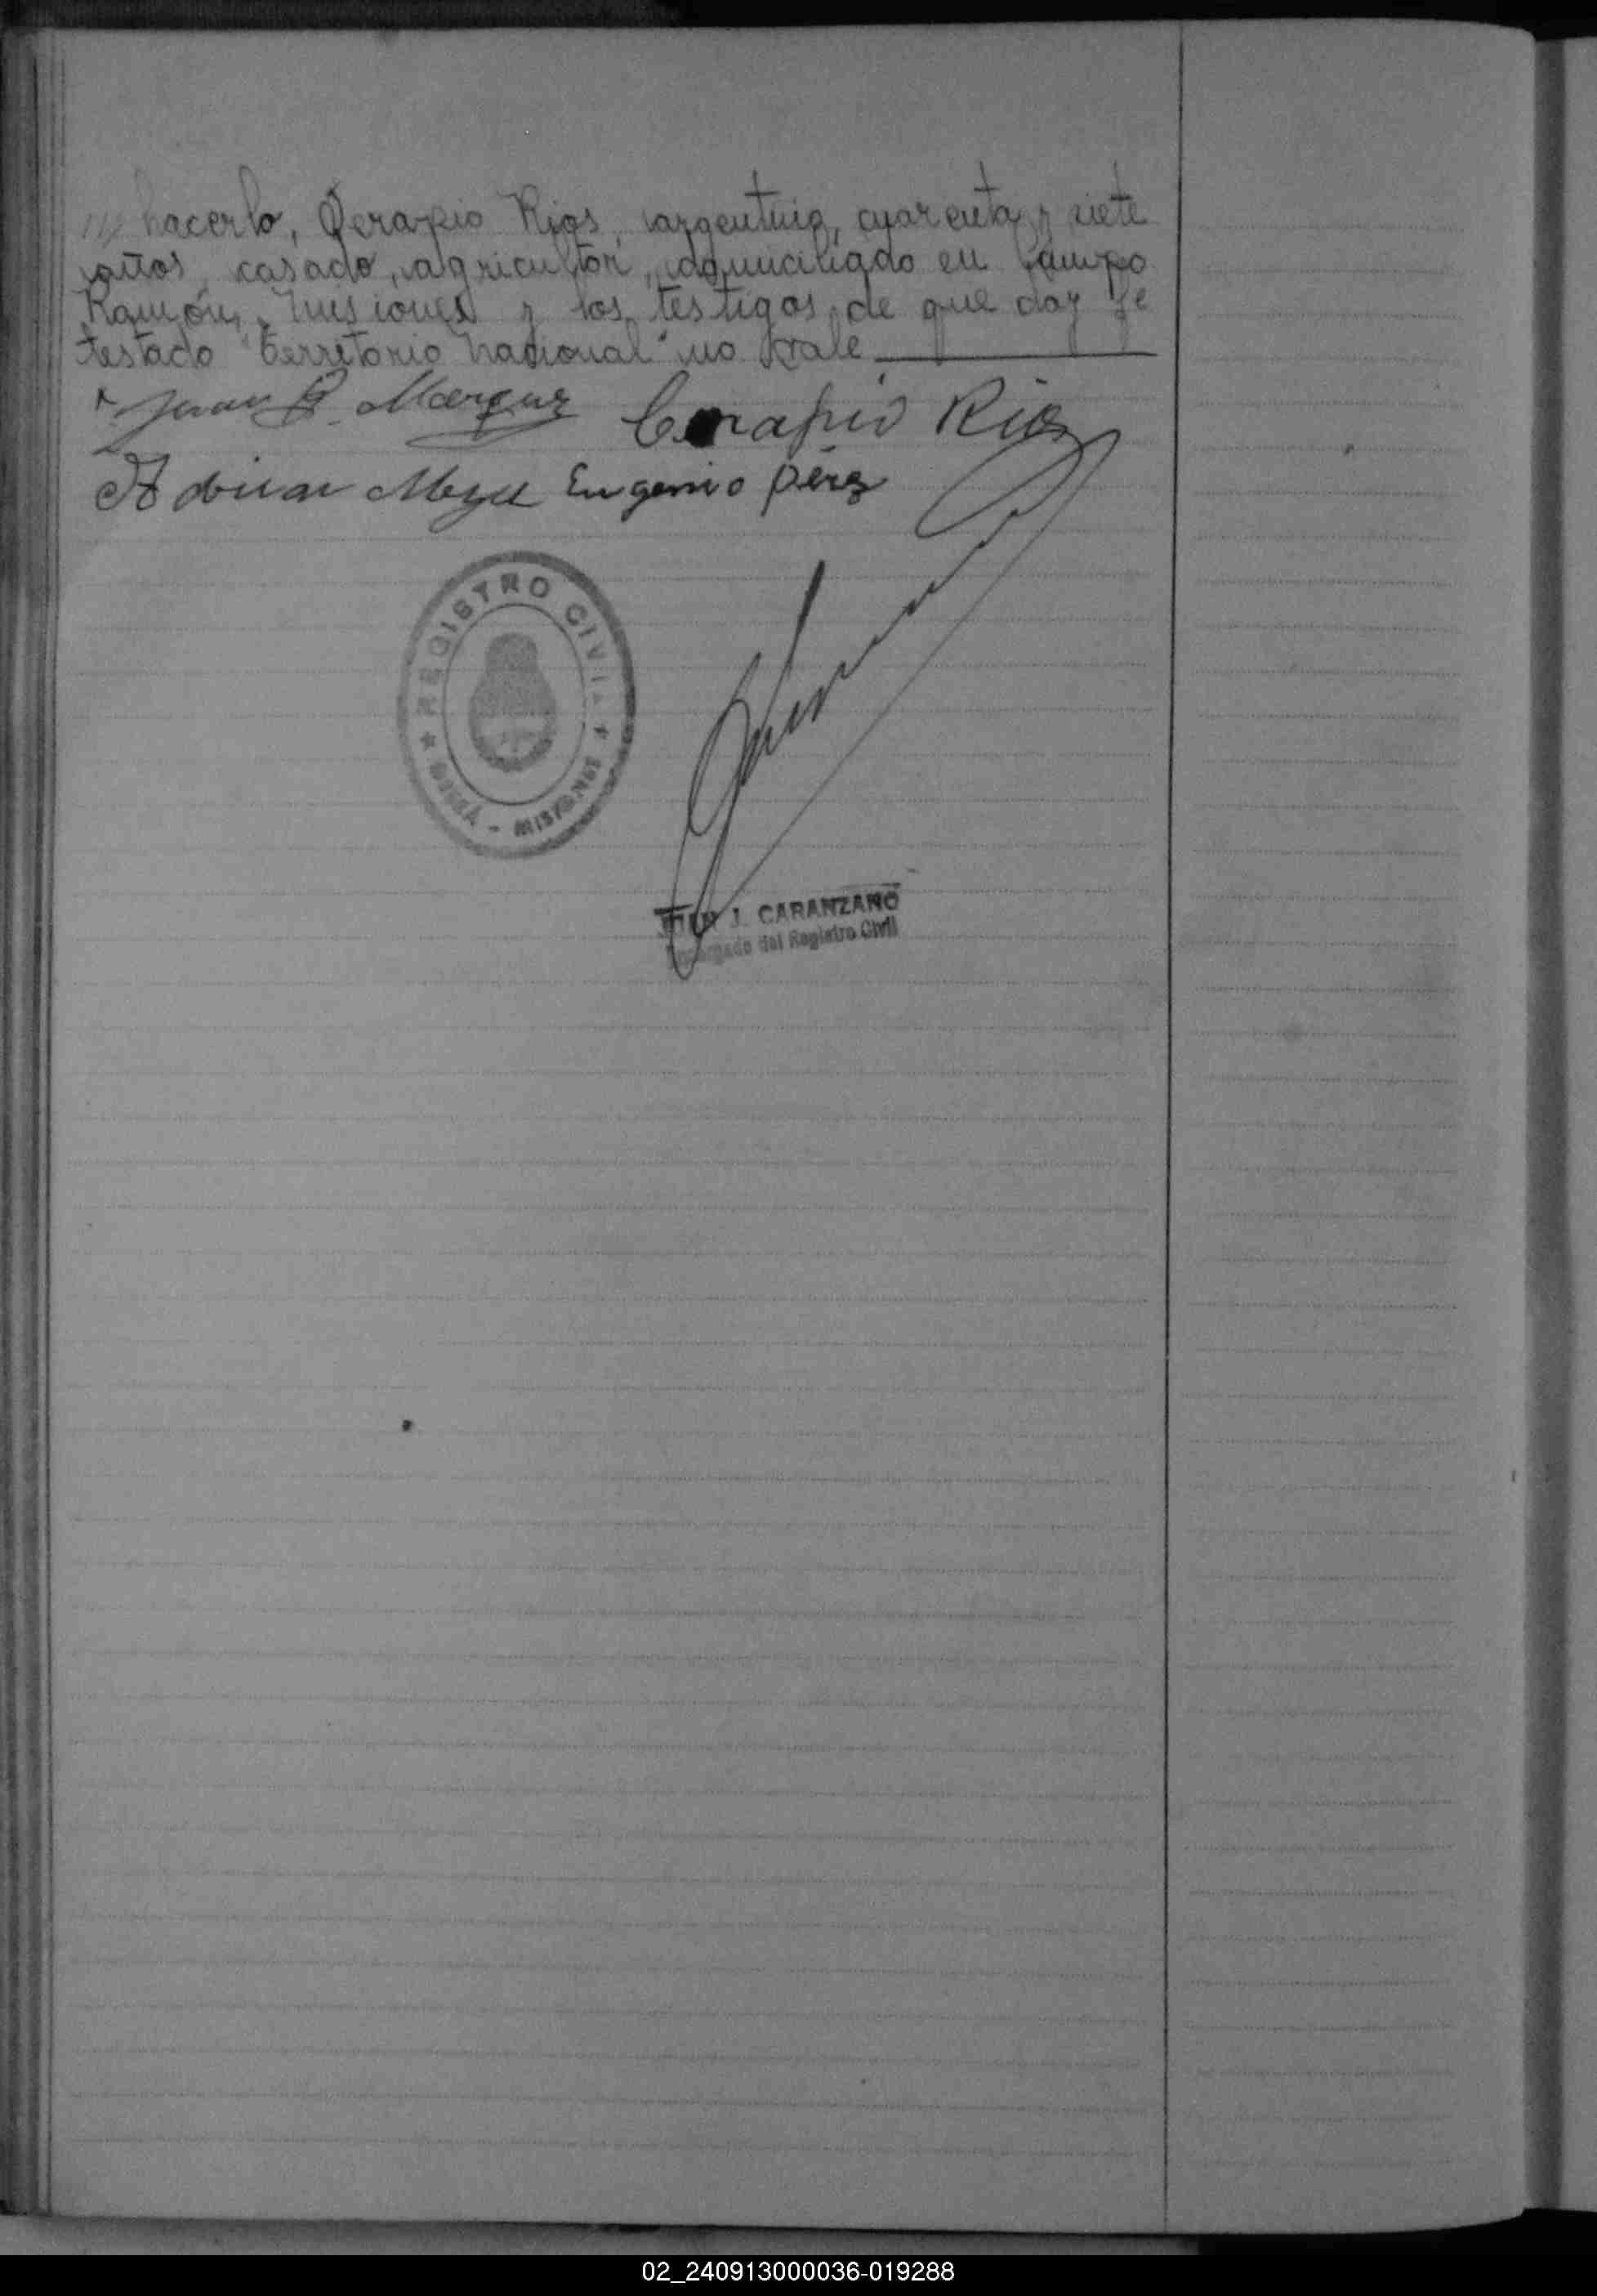 hacerlo, Serapio Rios, argentino, cuarenta y siete
años, casado, agricultor, domiciliado en Campo
Ramón, Misiones y los testigos de que doy fe
testado "territorio Nacional" no vale
Juan B. Marquez Cerapio Rios
Eugenio Pérez
REGISTRO CIVIL
MISIONES
JUAN J. CARANZANO
Encargado del Registro Civil
02_240913000036-019288